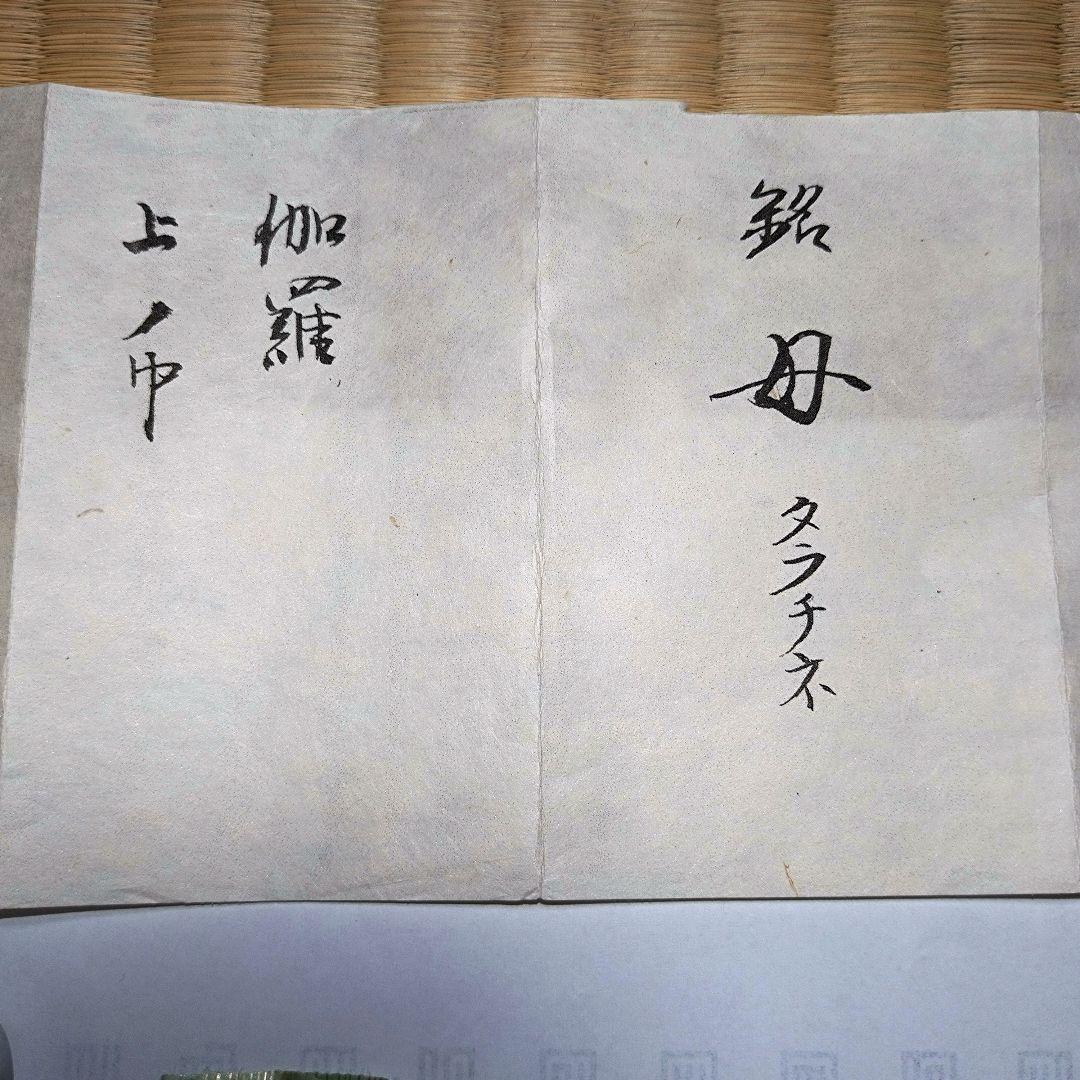 銘 母 タラチネ
伽羅
上ノ中